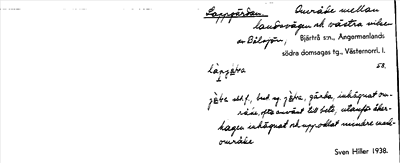 Lappgärdan. Område mellan
landsvägen och västra viken
av Bålsjön, Bjärtrå s:n, Ångermanlands
södra domsagas tg., Västernorrl. l.
58.
subst. f., best. sg. gärda, inhägnat om-
råde, ofta använt till bete, utanför åker-
hagen inhägnat och uppodlat mindre mark-
område
Sven Hiller 1938.